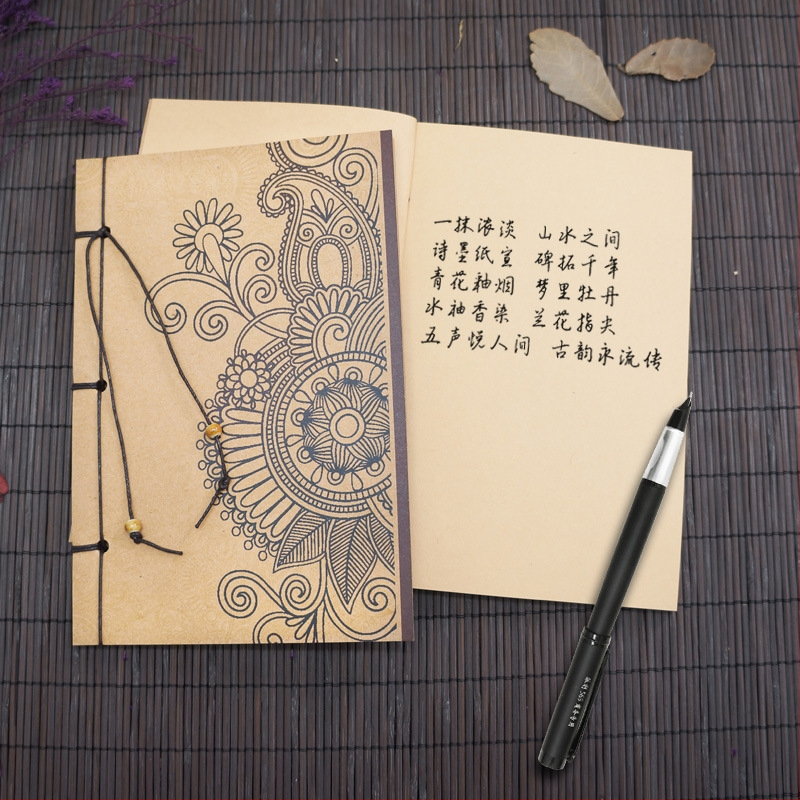 一抹浓淡 山水之间
诗墨纸宣 碑拓千年
青花釉烟 梦里牡丹
水袖香染 兰花指尖
五声悦人间 古韵永流传